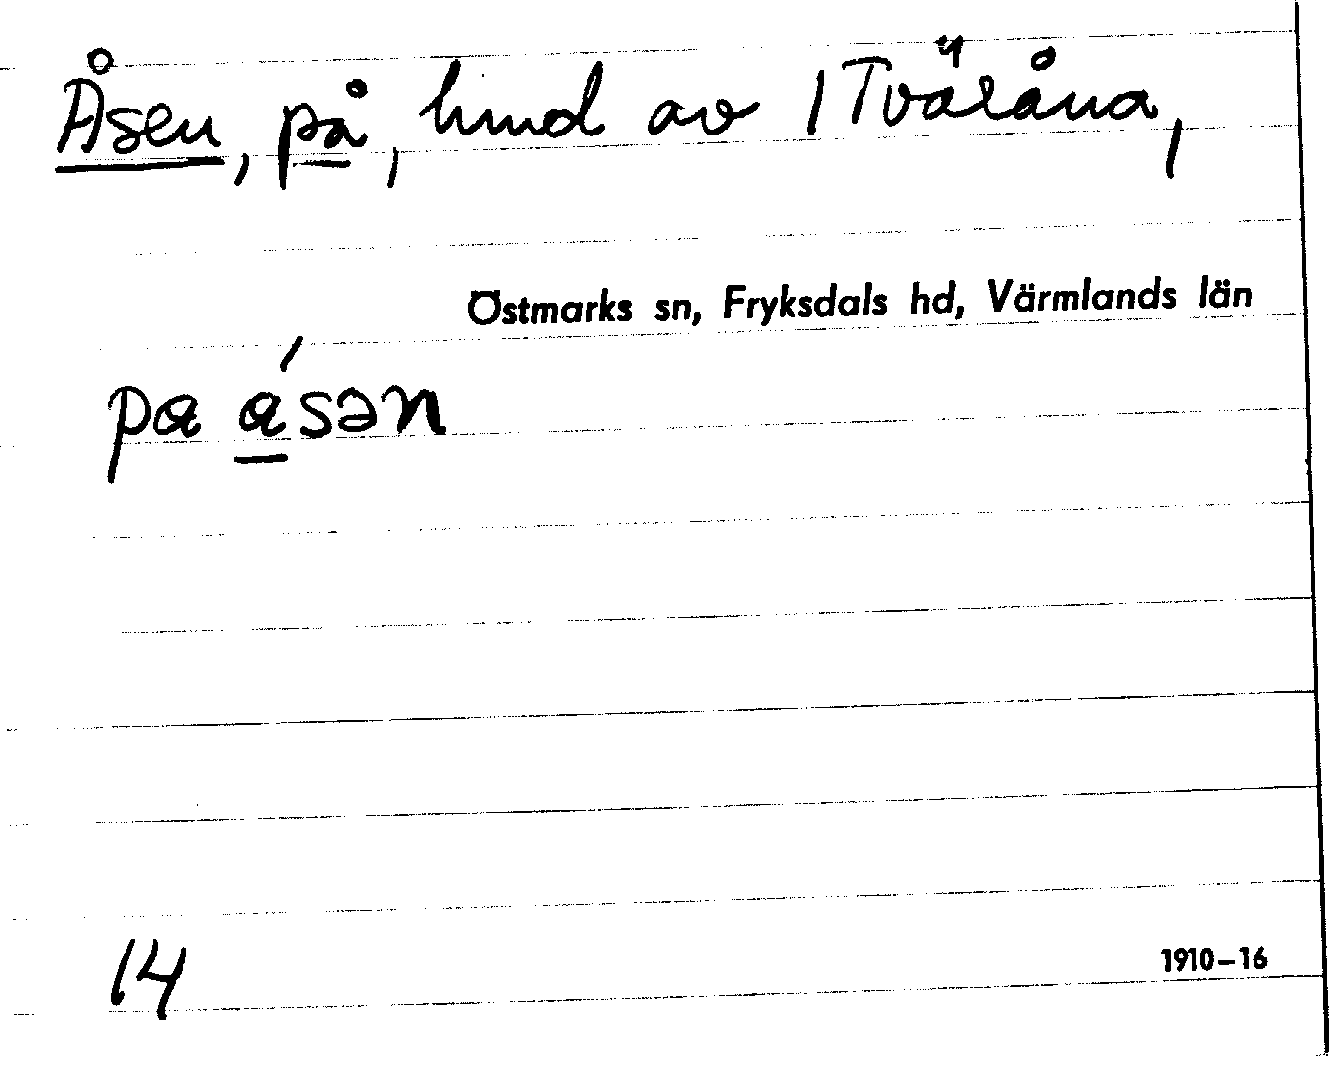 Åsen, på, hmd av 1 Tväråna,
Östmarks sn, Fryksdals hd, Värmlands län
pa á̲sən
14
1910–16